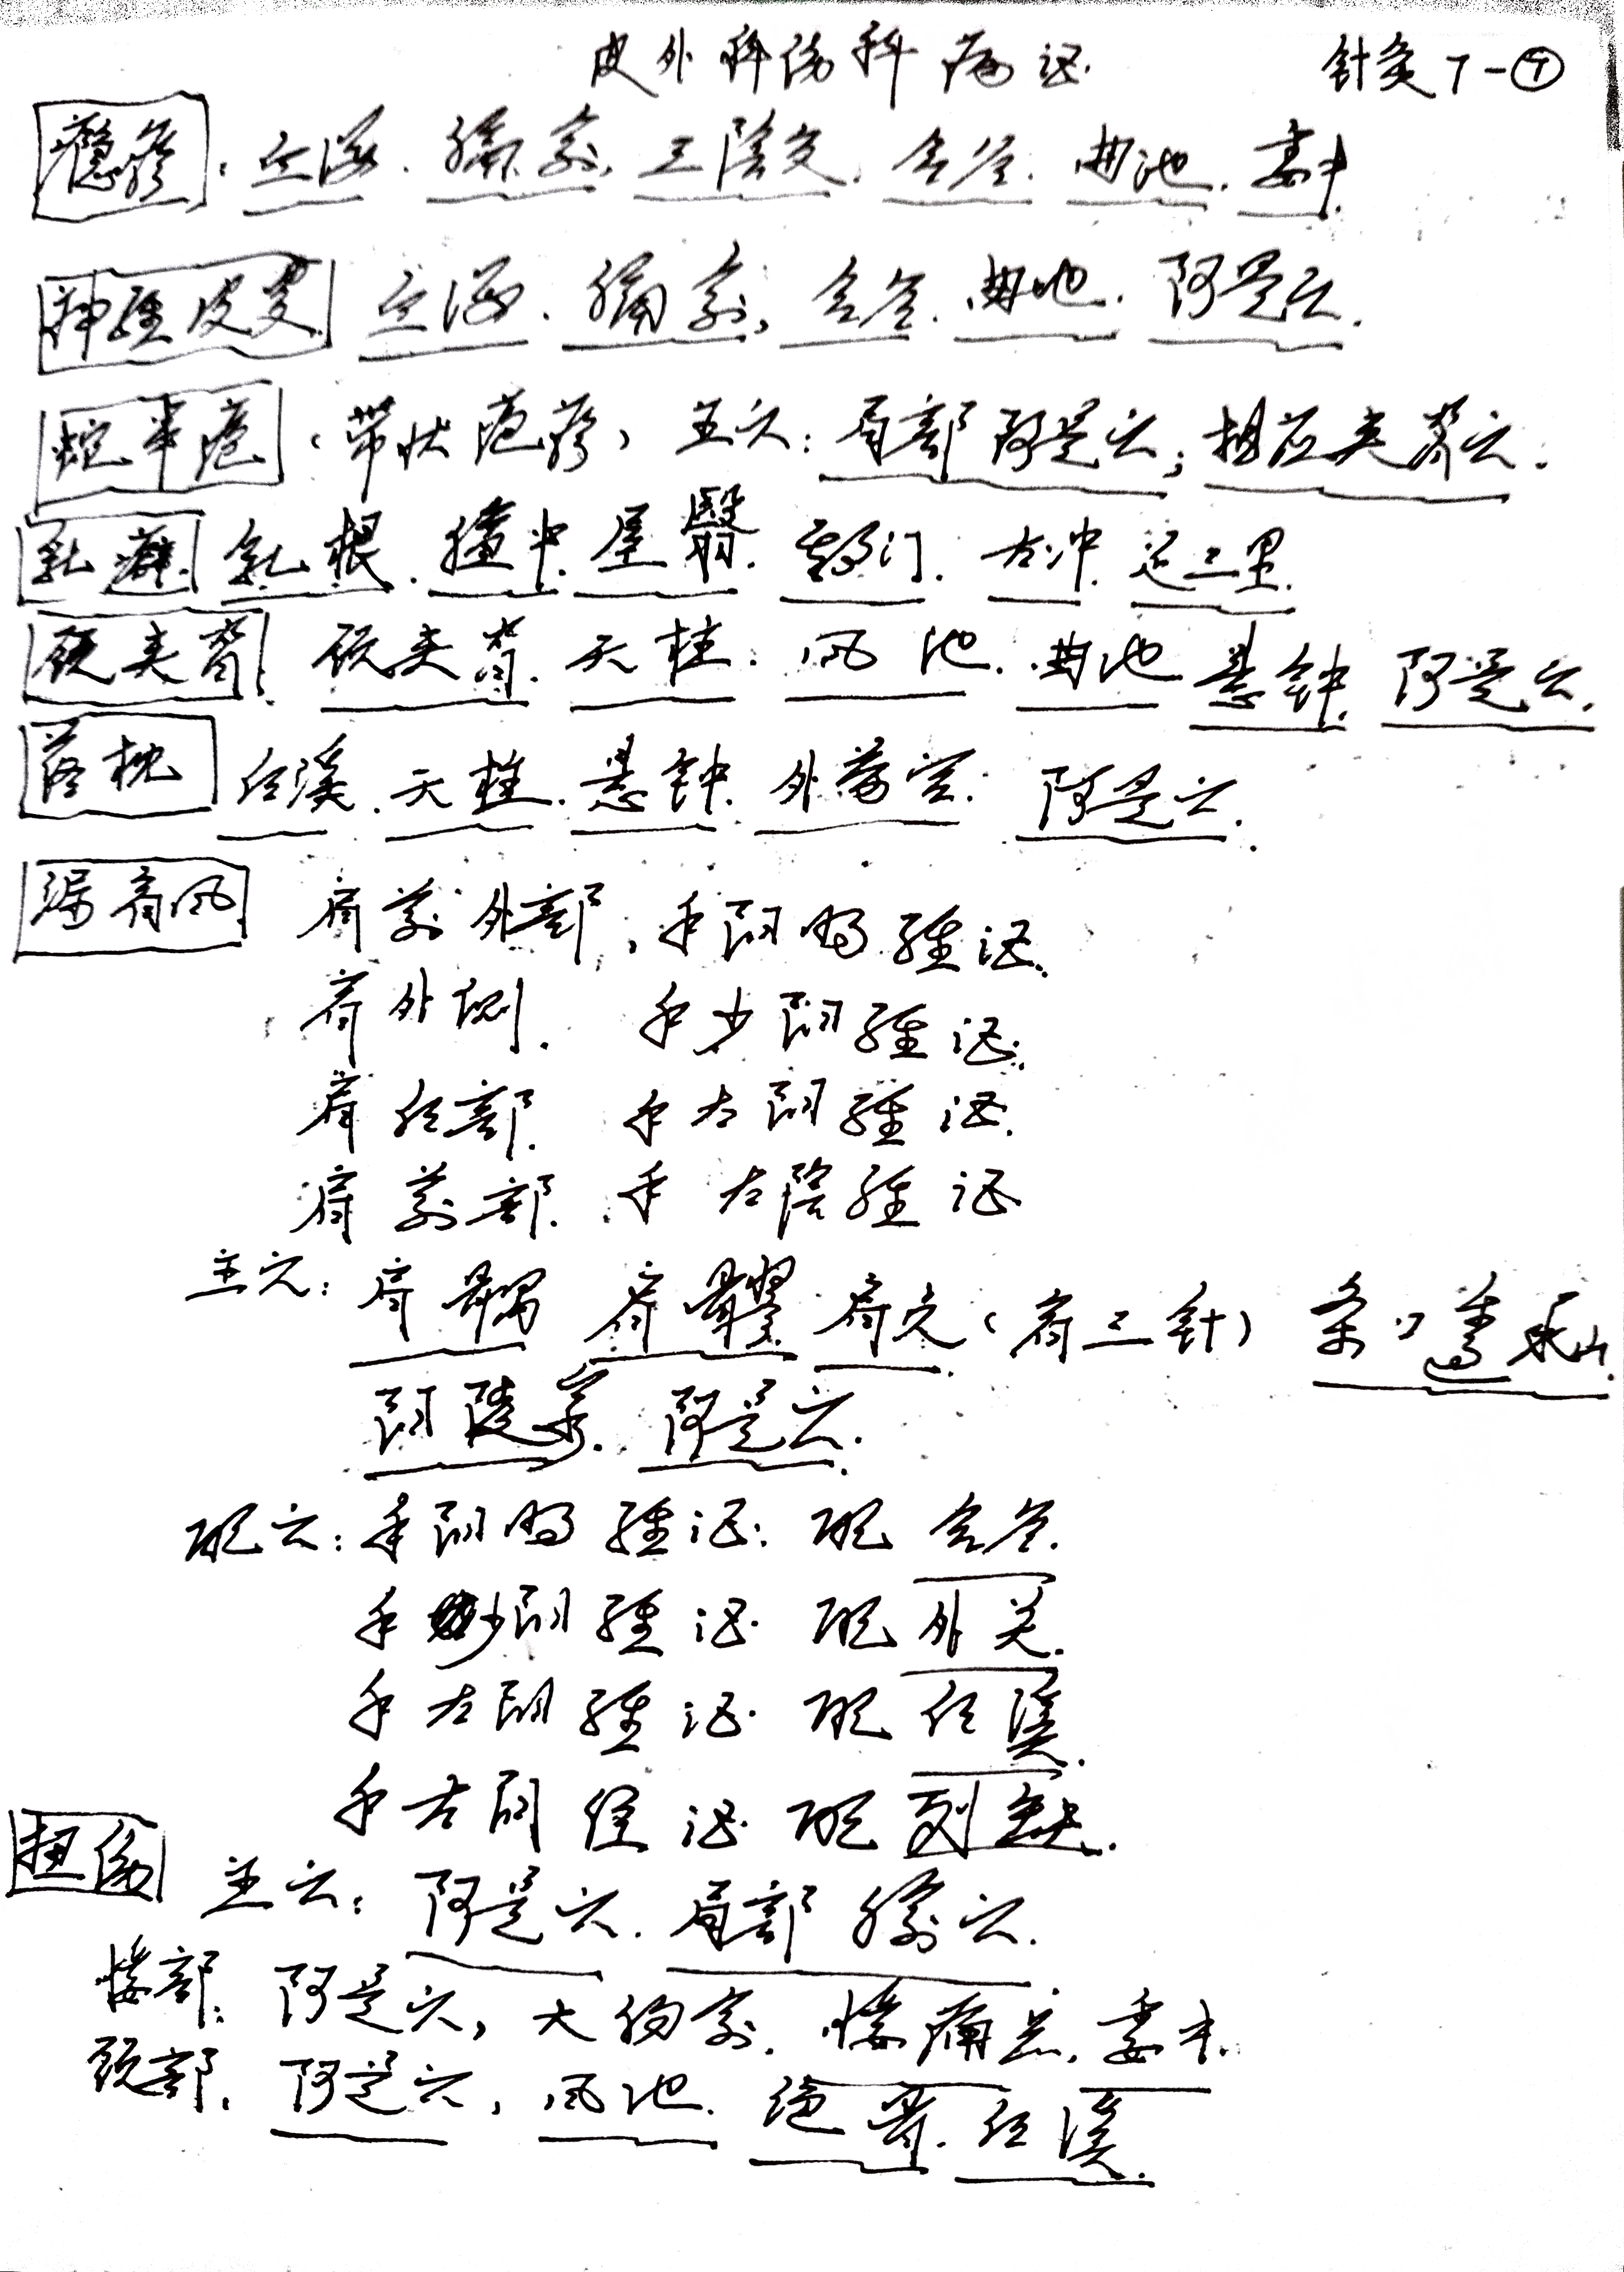 皮外科伤科病证. 针灸7-⑦
癮疹. 血海. 膈俞. 三陰交. 合谷. 曲池. 委中.
神經皮炎 血海. 膈俞, 合谷. 曲池. 阿是穴.
蛇串瘡(带状疱疹) 主穴: 局部阿是穴; 相应夹脊穴.
乳癖 乳根. 膻中. 屋翳. 期门. 太冲. 足三里.
颈夹脊 颈夹脊. 天柱. 风池. 曲池 悬钟. 阿是穴.
落枕 后溪. 天柱. 悬钟. 外劳宫. 阿是穴.
漏肩风 肩前外部, 手阳明經证.
肩外侧. 手少阳經证.
肩后部. 手太阳經证.
肩前部. 手太陰經证
主穴: 肩髃 肩髎 肩贞(肩三针) 条口透承山.
阳陵泉. 阿是穴.
配穴: 手阳明經证: 配合谷.
手少阳經证. 配外关.
手太阳經证. 配后溪.
手太阴经证. 配列缺.
扭伤 主穴: 阿是穴. 局部腧穴.
腰部: 阿是穴, 大肠俞. 腰痛点. 委中.
颈部. 阿是穴, 风池. 绝骨. 后溪.